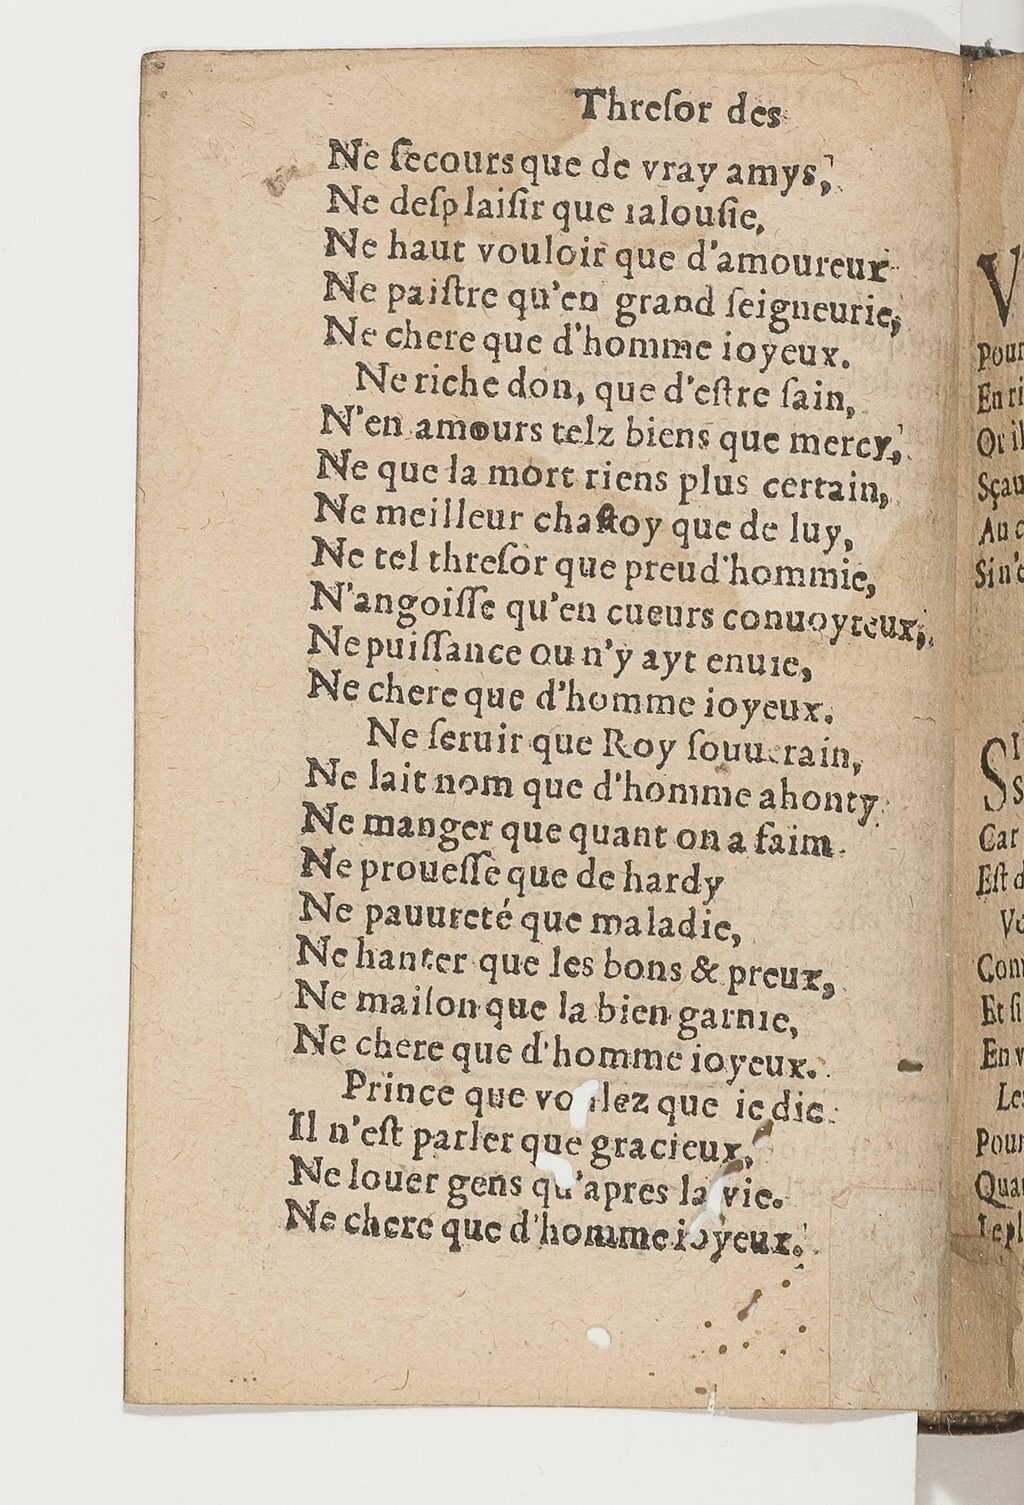 Threſor des
Ne ſecours que de vray amys,
Ne deſplaiſir que ialouſie,
Ne haut vouloir que d'amoureux
Ne paiſtre qu'en grand ſeigneurie,
Ne chere que d'homme ioyeux.
Ne riche don, que d'eſtre ſain,
N'en amours telz biens que mercy,
Ne que la mort riens plus certain,
Ne meilleur chaſtoy que de luy,
Ne tel threſor que preud'hommie,
N'angoiſſe qu'en cueurs conuoyteux,
Ne puiſſance ou n'y ayt enuie,
Ne chere que d'homme ioyeux.
Ne ſeruir que Roy ſouuerain,
Ne lait nom que d'homme ahonty
Ne manger que quant on a faim.
Ne proueſſe que de hardy
Ne pauureté que maladie,
Ne hanter que les bons & preux,
Ne maiſon que la bien garnie,
Ne chere que d'homme ioyeux.
Prince que voulez que ie die.
Il n'eſt parler que gracieux,
Ne louer gens qu'apres la vie.
Ne chere que d'homme ioyeux.
V
Pour
En ri
Or il
Sçau
Au c
Si n'e
SI
s
Car
Eſt d
Et ſi
En v
Pour